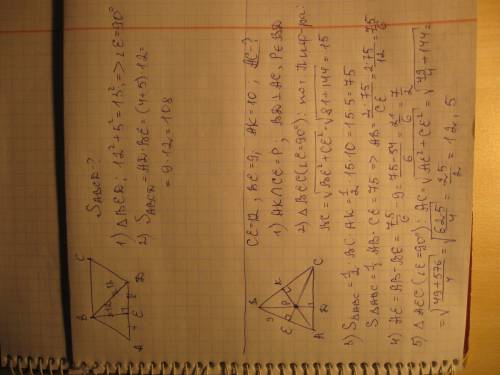 S_ABCD - ?
1) △BED: 12² + 5² = 13², => ∠E = 90°
2) S_ABCD = AD · BE = (4+5) · 12 =
= 9 · 12 = 108
B
C
A
E
D
4
5
12
13
CE=12, BE=9, AK=10, AC-?
1) AK ∩ CE = P, BD ⊥ AC, P ∈ BD
2) △BEC (∠E=90°): по т. Пифагора:
BC = √BE² + CE² = √81 + 144 = 15
3) S△ABC = 1/2 BC · AK = 1/2 · 15 · 10 = 15 · 5 = 75
S△ABC = 1/2 · AB · CE = 75 => AB = 2 · 75 / CE = 2 · 75 / 12 = 75/6
4) AE = AB - BE = 75/6 - 9 = 75 - 54 / 6 = 21/6 = 7/2
5) △AEC (∠E=90°): AC = √AE² + CE² = √49/4 + 144 =
= √49 + 576 / 4 = √625/4 = 25/2 = 12,5
B
9
E
K
P
A
D
C